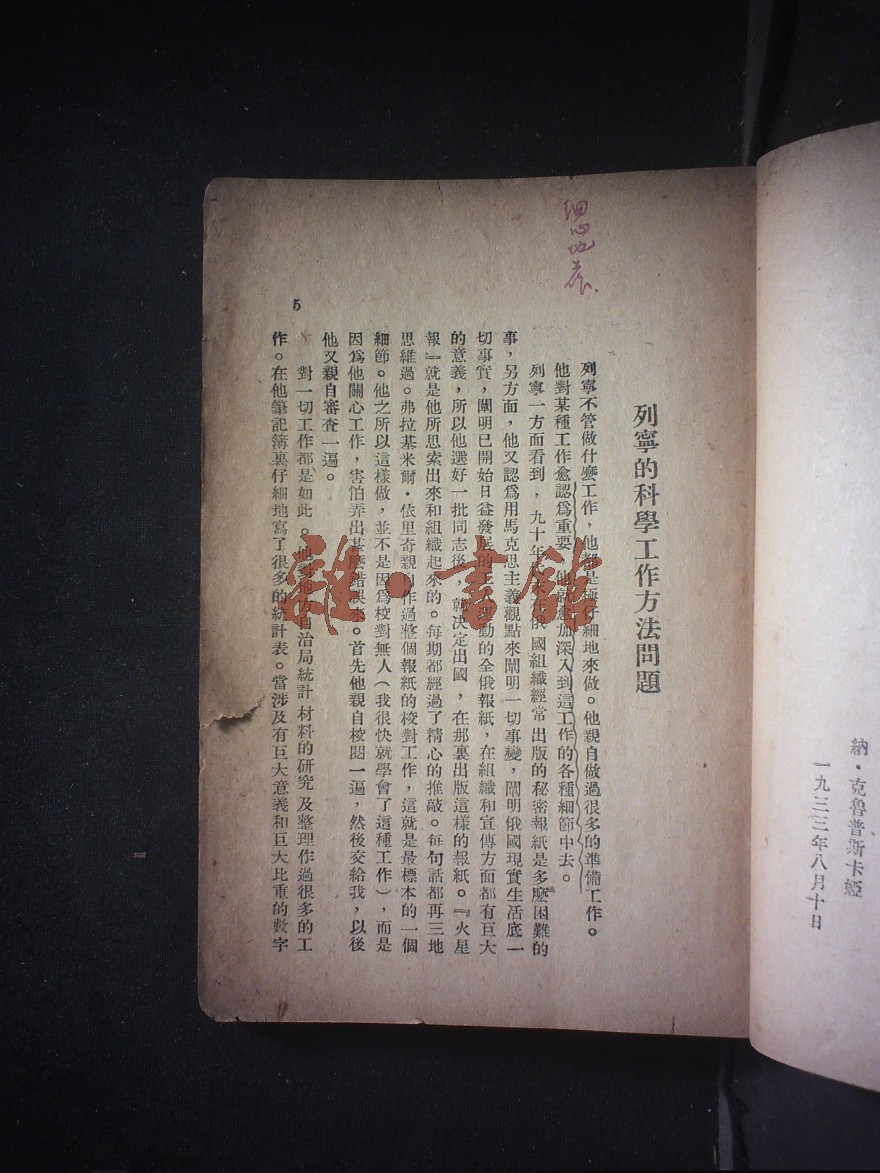 納·克魯普斯卡婭
一九三三年八月十日
細心地
列寧的科學工作方法問題
列寧不管做什麼工作，他是極仔細地來做。他親自做過很多的準備工作。
他對某種工作愈認爲重要，他就愈加深入到這工作的各種細節中去。
列寧一方面看到，九十年末在俄國組織經常出版的秘密報紙是多麼困難的
事，另方面，他又認爲用馬克思主義觀點來闡明一切事變，闡明俄國現實生活底一
切事實，闡明已開始日益發展的工人運動的全俄報紙，在組織和宣傳方面都有巨大
的意義，所以他選好一批同志後，就決定出國，在那裏出版這樣的報紙。『火星
報』就是他所思索出來和組織起來的。每期都經過了精心的推敲。每句話都再三地
思維過。弗拉基米爾·依里奇親自作過整個報紙的校對工作，這就是最標本的一個
細節。他之所以這樣做，並不是因爲校對無人（我很快就學會了這種工作），而是
因爲他關心工作，害怕弄出甚麼錯誤來。首先他親自校閱一遍，然後交給我，以後
他又親自審查一遍。
對一切工作都是如此。他對地方自治局統計材料的研究及整理作過很多的工
作。在他筆記簿裏仔細地寫了很多的統計表。當涉及有巨大意義和巨大比重的數字
5
雜·書館